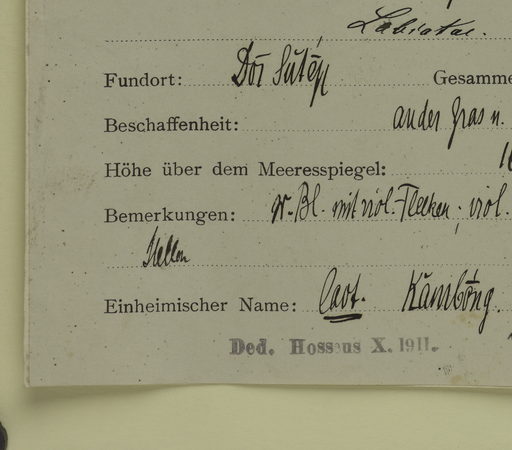 Labiatae.
Fundort: Dōi Sūtēp Gesamme
Beschaffenheit: an der Gras u.
Höhe über dem Meeresspiegel: 16
Bemerkungen: w. Bl. mit viol. Flecken; viol.
Stellen
Einheimischer Name: Laot. Kāmbōng.
Ded. Hosseus X. 1911.